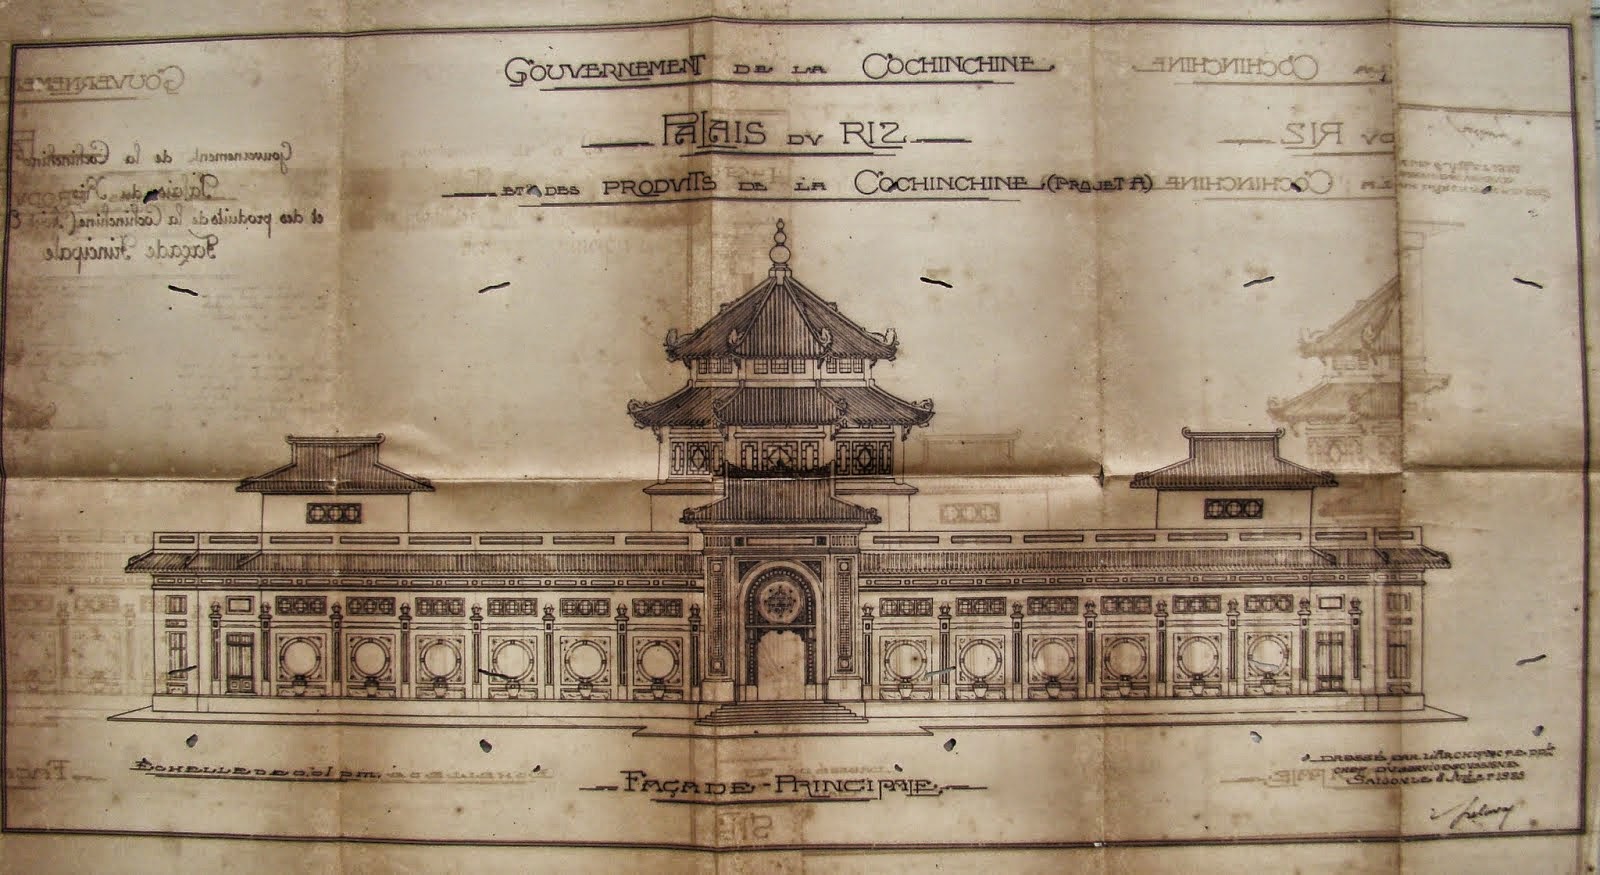 GOUVERNEMENT DE LA COCHINCHINE
PALAIS DU RIZ
ET DES PRODUITS DE LA COCHINCHINE (PROJET A)
Gouvernement de la Cochinchine
Palais du Riz
et des produits de la Cochinchine
Façade Principale
ECHELLE DE 0.01 P.M.
FAÇADE-PRINCIPALE
DRESSÉ PAR L'ARCHITECTE
CHEF DU SERVICE
SAIGON LE 8